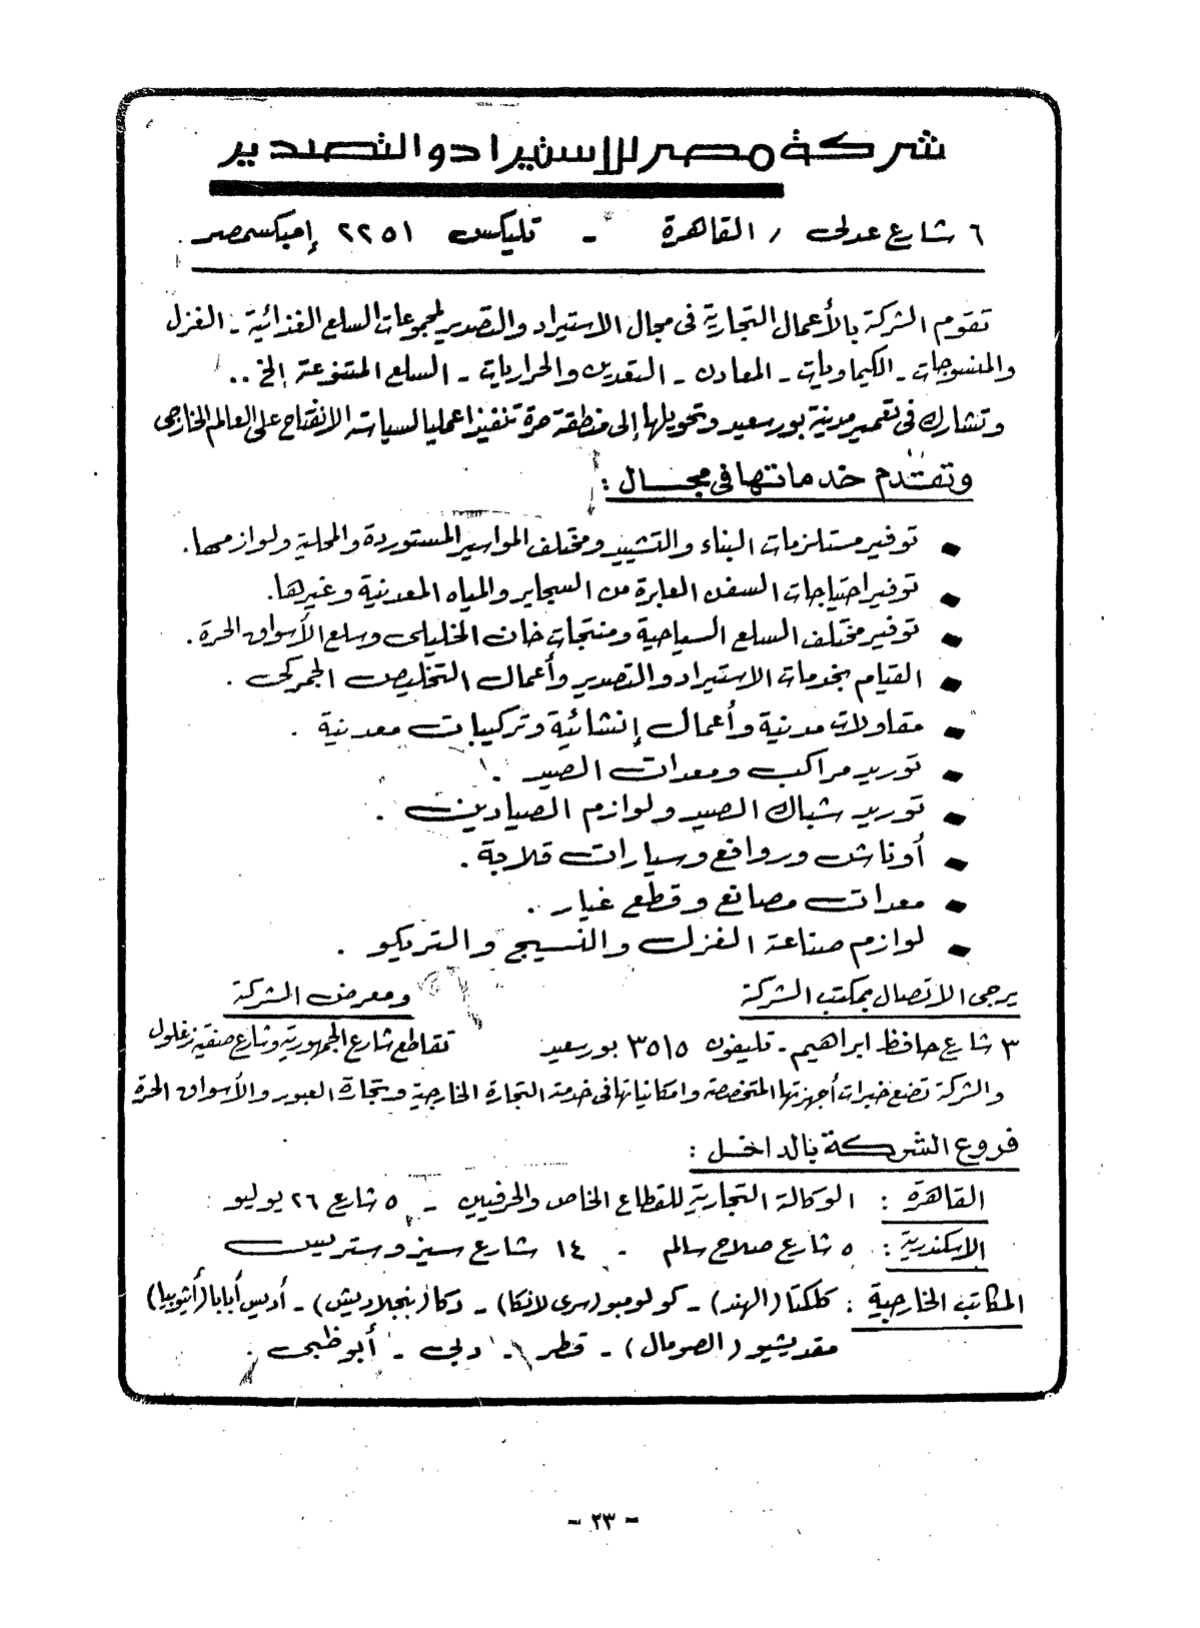 شركة مصر للاستيراد والتصدير
٦ شارع عدلى / القاهرة - تليكس ٢٢٥١ إمبكسمصر
تقوم الشركة بالأعمال التجارية فى مجال الاستيراد والتصدير لمجموعات السلع الغذائية - الغزل
والمنسوجات - الكيماويات - المعادن - التعدين والحراريات - السلع المتنوعة إلخ ..
وتشارك فى تعمير مدينة بورسعيد وتحويلها إلى منطقة حرة تنفيذا عمليا لسياسة الانفتاح على العالم الخارجى
وتقدم خدماتها فى مجال :
• توفير مستلزمات البناء والتشييد ومختلف المواسير المستوردة والمحلية ولوازمها.
• توفير احتياجات السفن العابرة من السجاير والمياه المعدنية وغيرها.
• توفير مختلف السلع السياحية ومنتجات خان الخليلى وسلع الأسواق الحرة.
• القيام بخدمات الاستيراد والتصدير وأعمال التخليص الجمركى .
• مقاولات مدنية وأعمال إنشائية وتركيبات معدنية .
• توريد مراكب ومعدات الصيد .
• توريد شباك الصيد ولوازم الصيادين .
• أوناش وروافع وسيارات قلابة .
• معدات مصانع وقطع غيار .
• لوازم صناعة الغزل والنسيج والتريكو .
يرجى الاتصال بمكتب الشركة ومعرض الشركة
٣ شارع حافظ ابراهيم - تليفون ٣٥١٥ بورسعيد تقاطع شارع الجمهورية وشارع صفية زغلول
والشركة تضع خبرات أجهزتها المتخصصة وامكانياتها فى خدمة التجارة الخارجية وتجارة العبور والأسواق الحرة
فروع الشركة بالداخل :
القاهرة : الوكالة التجارية للقطاع الخاص والحرفيين - ٥ شارع ٢٦ يوليو
الاسكندرية : ٥ شارع صلاح سالم - ١٤ شارع سيزوستريس
المكاتب الخارجية : كلكتا (الهند) - كولومبو (سرى لانكا) - دكا (بنجلاديش) - أديس أبابا (أثيوبيا)
مقديشيو (الصومال) - قطر - دبى - أبوظبى .
- ٢٣ -